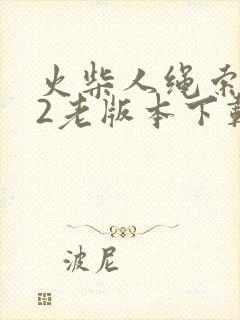 火柴人绳索
2老版本下载
波尼